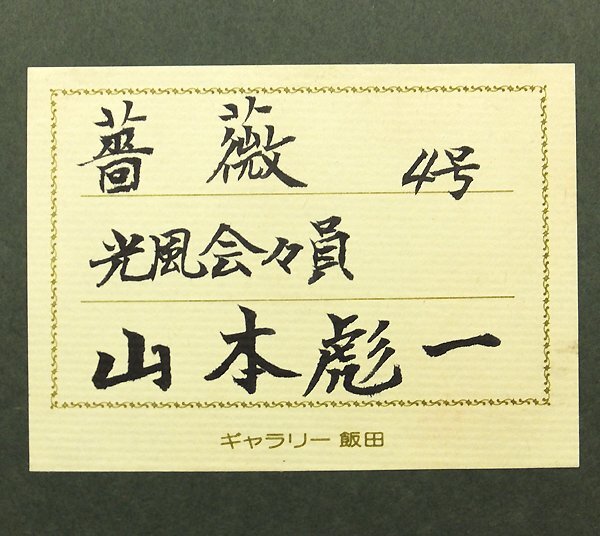 薔薇 4号
光風会々員
山本彪一
ギャラリー 飯田